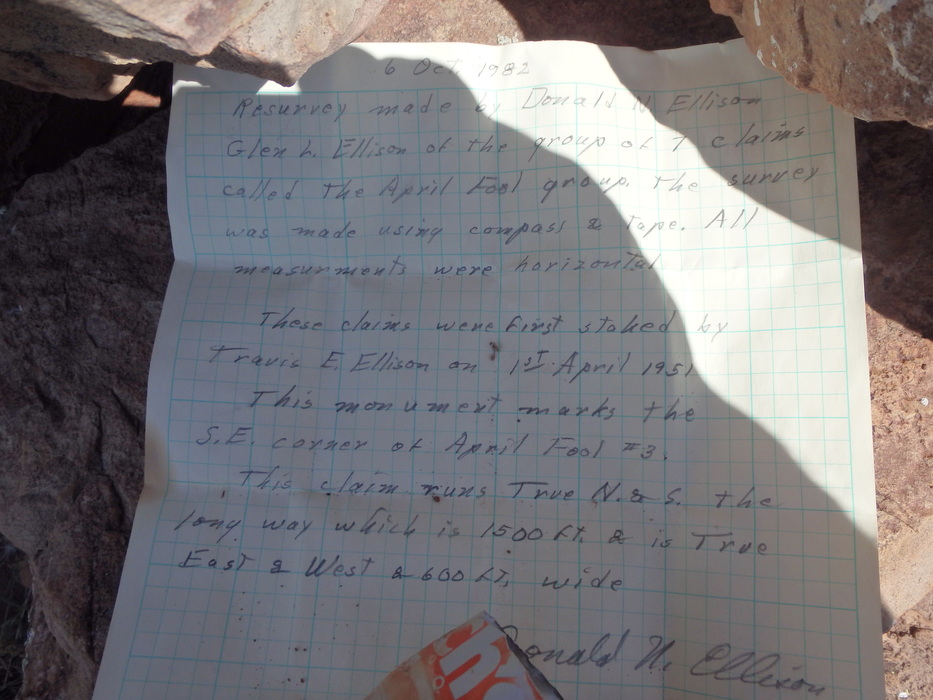 6 Oct. 1982
Resurvey made by Donald N. Ellison
Glen L. Ellison of the group of 7 claims
called the April Fool group. The survey
was made using compass & Tape. All
measurments were horizontal
These claims were first staked by
Travis E. Ellison on 1st April 1951
This monument marks the
S.E. corner of April Fool #3.
This claim runs True N. & S. the
long way which is 1500 ft. & is True
East & West & 600 ft. wide
Donald N. Ellison